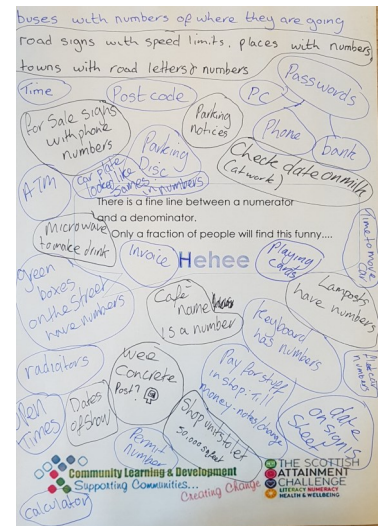 buses with numbers of where they are going
road signs with speed limits, places with numbers,
towns with road letters & numbers
Time
Post code
PC
Passwords
Phone
bank
for Sale signs
with phone
numbers
Parking
notices
Parking
Disc
Check date on milk
(at work)
ATM
car plate
looks like
sames in numbers
There is a fine line between a numerator
and a denominator.
Only a fraction of people will find this funny....
microwave
to make drink
Invoice
Hehee
Playing
cards
Time to move
car
green
boxes
on the street
have numbers
Café
name
is a number
Keyboard
has numbers
Lamposts
have numbers
radiators
wee
Concrete
Post?
Pay for stuff
in shop: Till
money - notes/change
numbers
Times
Dates
of show
Shop units to let
date
on sign
Sheet
Permit
number
Calculator
Community Learning & Development
Supporting Communities...
Creating Change
THE SCOTTISH
ATTAINMENT
CHALLENGE
LITERACY NUMERACY
HEALTH & WELLBEING